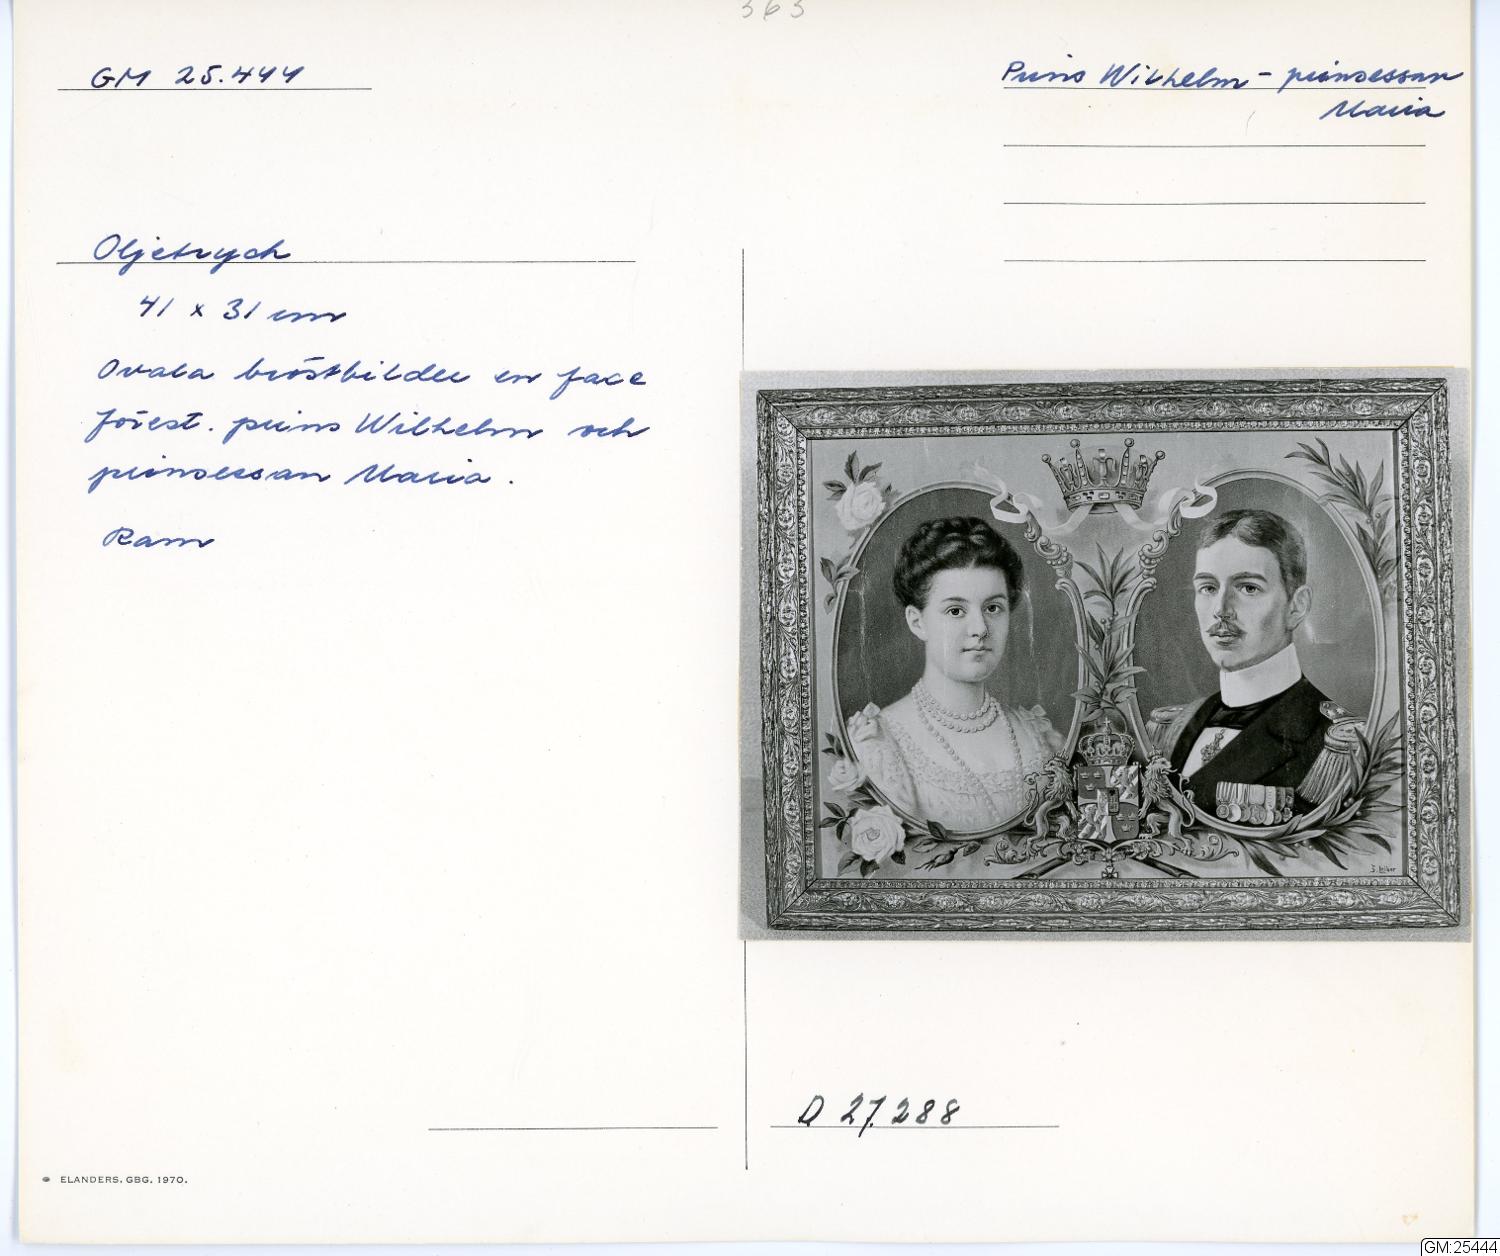 363
GM 25.444
Prins Wilhelm - prinsessan
Maria
Oljetryck
41 x 31 cm
Ovala bröstbilder en face
förest. prins Wilhelm och
prinsessan Maria.
Ram
D 27.288
ELANDERS. GBG. 1970.
GM:25444